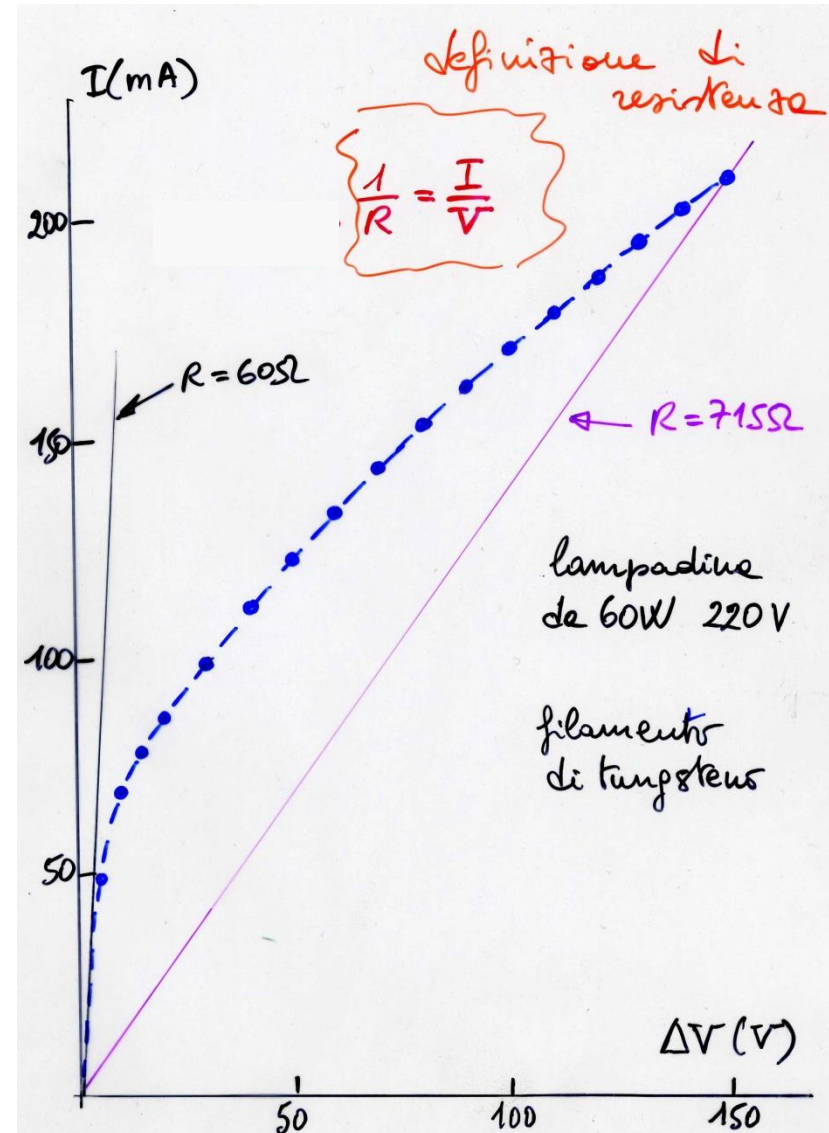 I(mA)
definizione di
resistenza
1/R = I/V
200
R = 60Ω
150
R = 715Ω
lampadina
da 60W 220V
100
filamento
di tungsteno
50
ΔV (V)
50 100 150